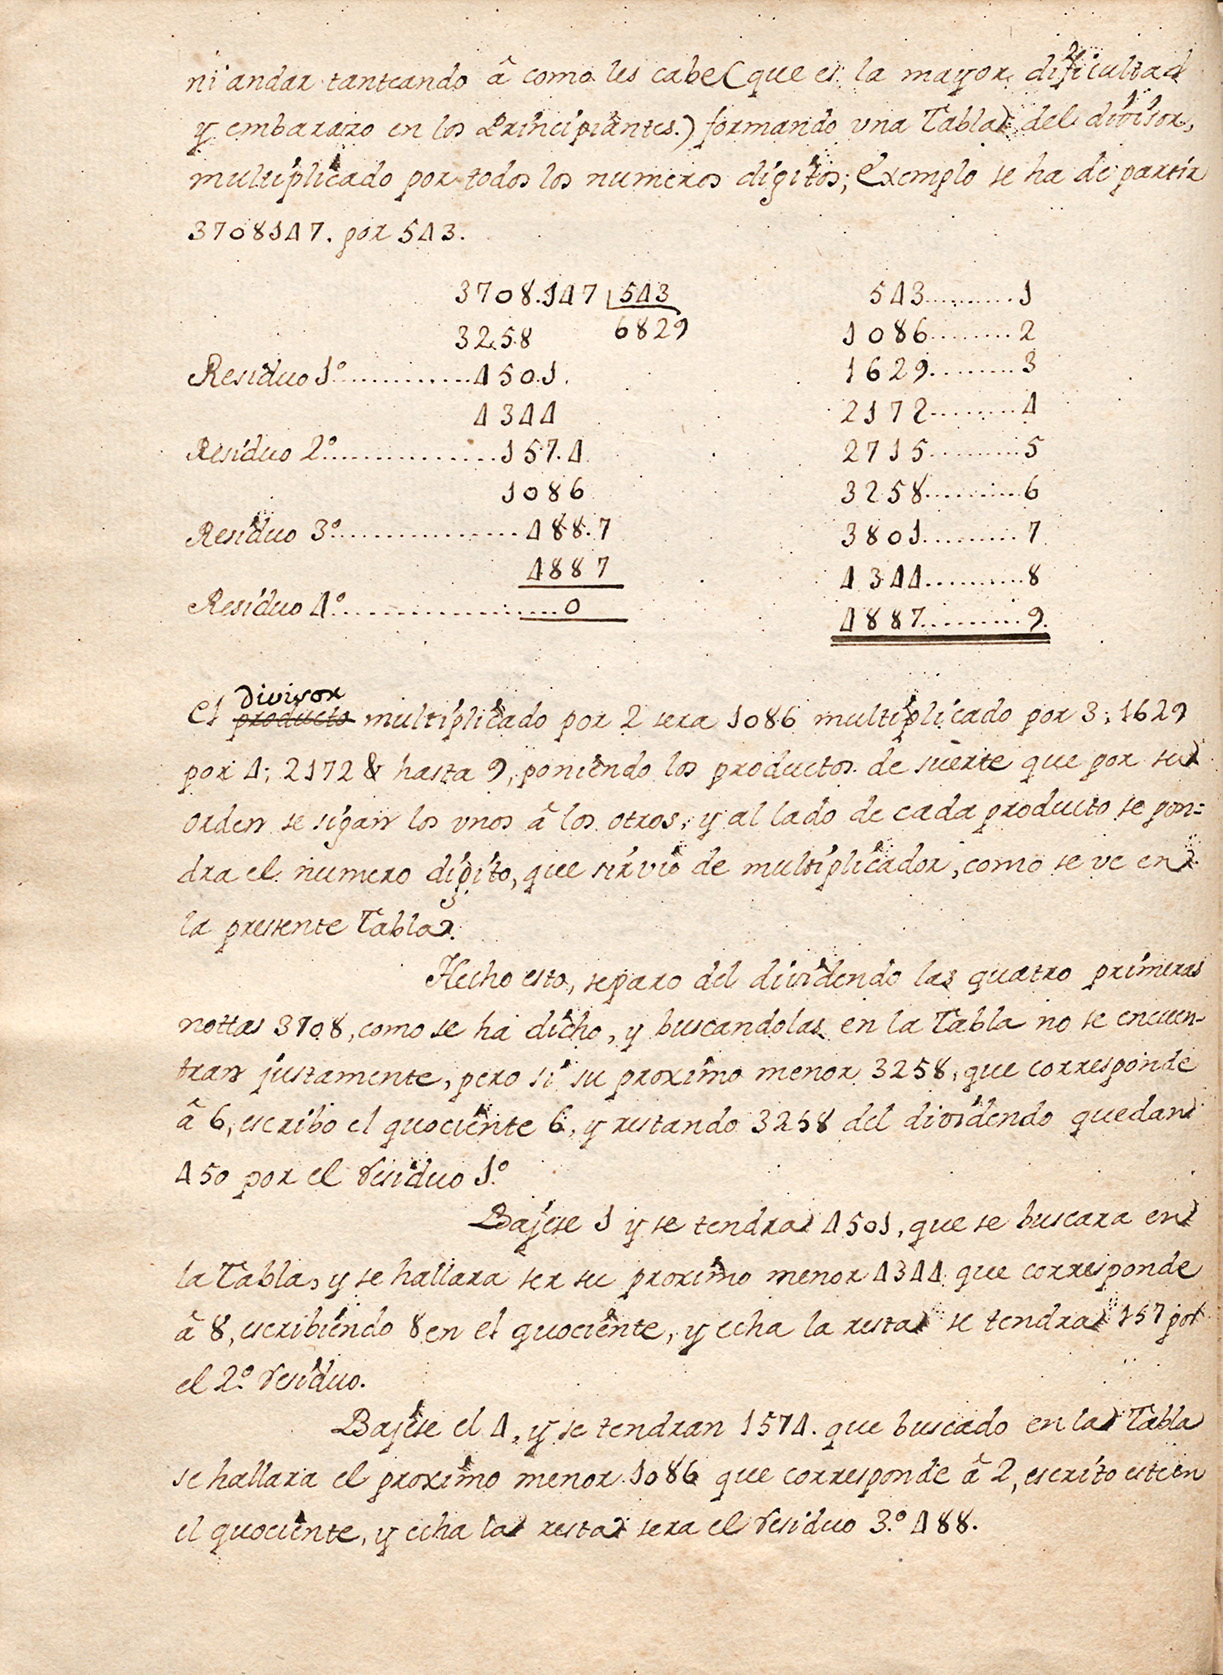 ni andar tanteando â como les cabe (que es la mayor dificultad
y embarazo en los Principiantes.) formando vna Tabla del divisor,
multiplicado por todos los numeros digitos; Exemplo se ha de partir
3708147. por 543.
3708.147 543
6829
3258
Residuo 1º ............. 450.1.
4344
Residuo 2º ............... 157.4
1086
Residuo 3º ................. 488.7
4887
Residuo 4º ................... 0
543.......... 1
1086......... 2
1629......... 3
2172......... 4
2715......... 5
3258.......... 6
3801.......... 7
4344.......... 8
4887.......... 9.
divisor
El producto multiplicado por 2 sera 1086 multiplicado por 3; 1629
por 4; 2172 & hasta 9, poniendo los productos de suerte que por su
orden se sigan los vnos â los otros, y al lado de cada producto se pon=
dra el numero digito, que sirvio de multiplicador, como se ve en
la presente Tabla.
Hecho esto, separo del dividendo las quatro primeras
nottas 3708, como se ha dicho, y buscandolas en la Tabla no se encuen-
tran justamente, pero si su proximo menor 3258, que corresponde
â 6, escribo el quociente 6, y restando 3258 del dividendo quedan
450 por el residuo 1º
Bajese 1 y se tendra 4501, que se buscara en
la Tabla, y se hallara ser su proximo menor 4344 que corresponde
â 8, escribiendo 8 en el quociente, y echa la resta se tendra 157 por
el 2º residuo.
Bajese el 4, y se tendran 1574. que buscado en la Tabla
se hallara el proximo menor 1086 que corresponde â 2, escrito este en
el quociente, y echa la resta sera el residuo 3.º 488.